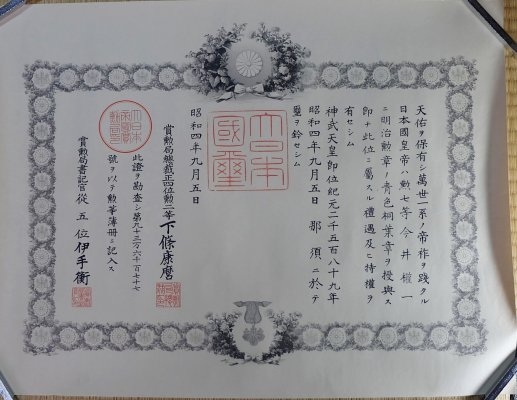 天佑ヲ保有シ萬世一系ノ帝祚ヲ踐タル
日本國皇帝ハ勲七等今井權一
ニ明治勲章ノ青色桐葉章ヲ授與ス
即チ此位ニ屬スル禮遇及ヒ特權ヲ
有セシム
神武天皇即位紀元二千五百八十九年
昭和四年九月五日那須ニ於テ
璽ヲ鈐セシム
大日本國璽
昭和四年九月五日
賞勲局總裁正四位勲二等下條康麿
此證ヲ勘査シ第九十三万六千百七十七
號ヲ以テ勲等簿册ニ記入ス
賞勲局書記官從五位伊手衡